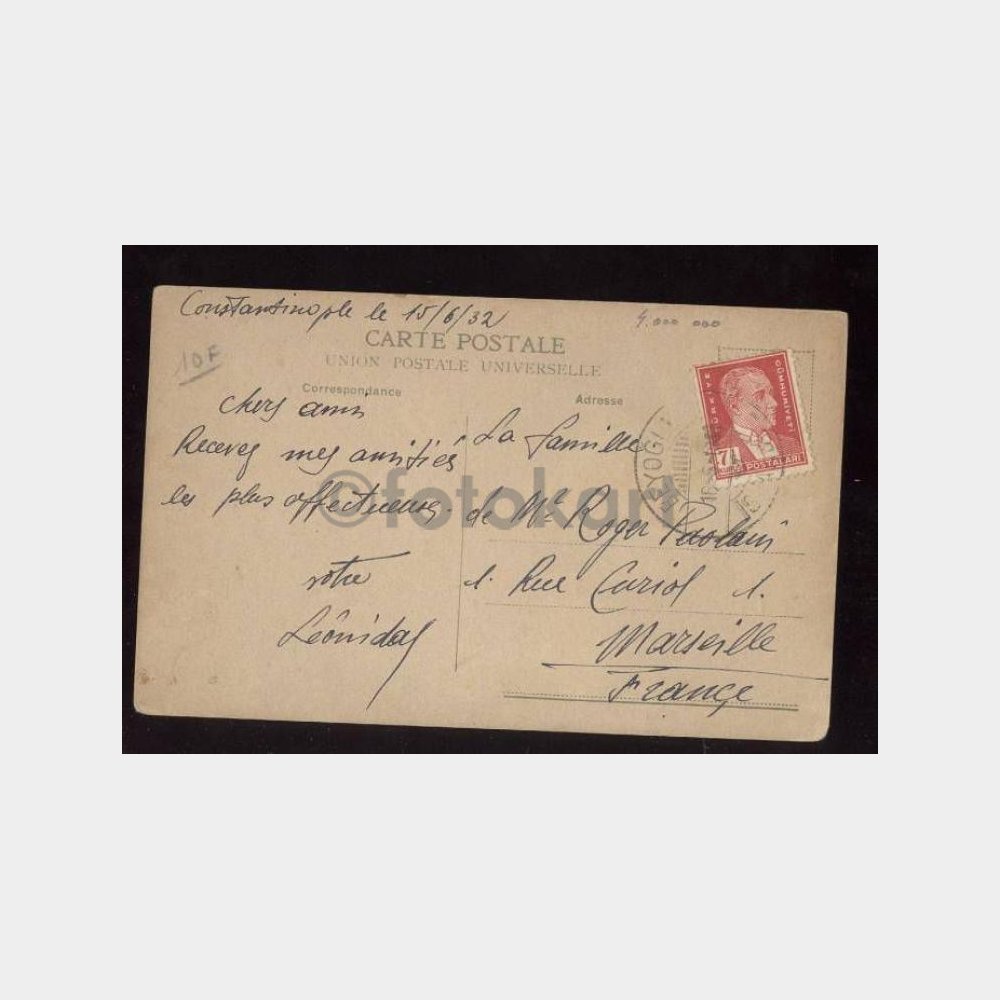 Constantinople le 15/6/32
4.000 000
10F
CARTE POSTALE
UNION POSTALE UNIVERSELLE
Correspondance
Adresse
chers amis
Recevez mes amitiés
les plus affectueuses
votre
Léonidas
La famille
de Mr Roger
1. Rue Curiol 1.
Marseille
France
CÜMHURİYETİ
POSTALARI
7½
BEYOĞLU
©fotokart